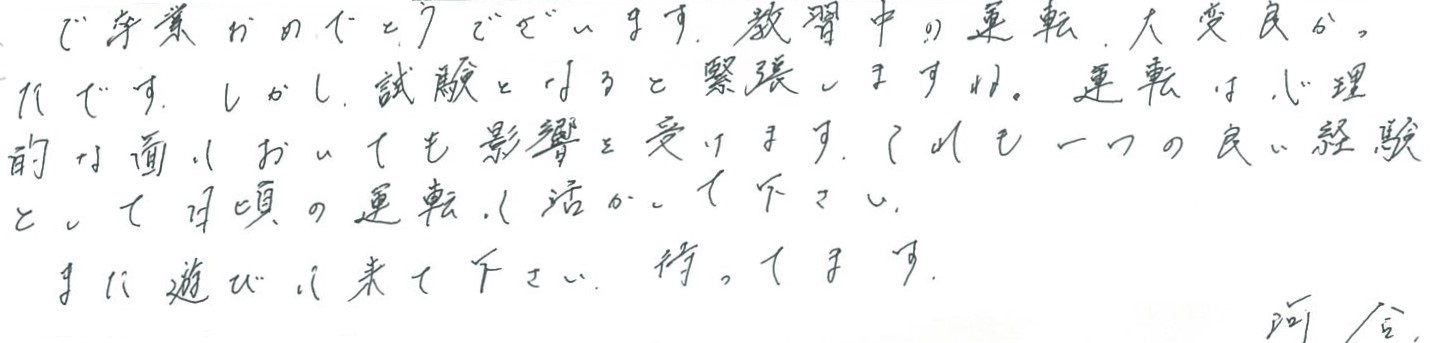 ご卒業おめでとうございます。教習中の運転、大変良かっ
たです。しかし、試験となると緊張しますね。運転は心理
的な面においても影響を受けます。これも一つの良い経験
として日頃の運転に活かして下さい。
また遊びに来て下さい。待ってます。
河合